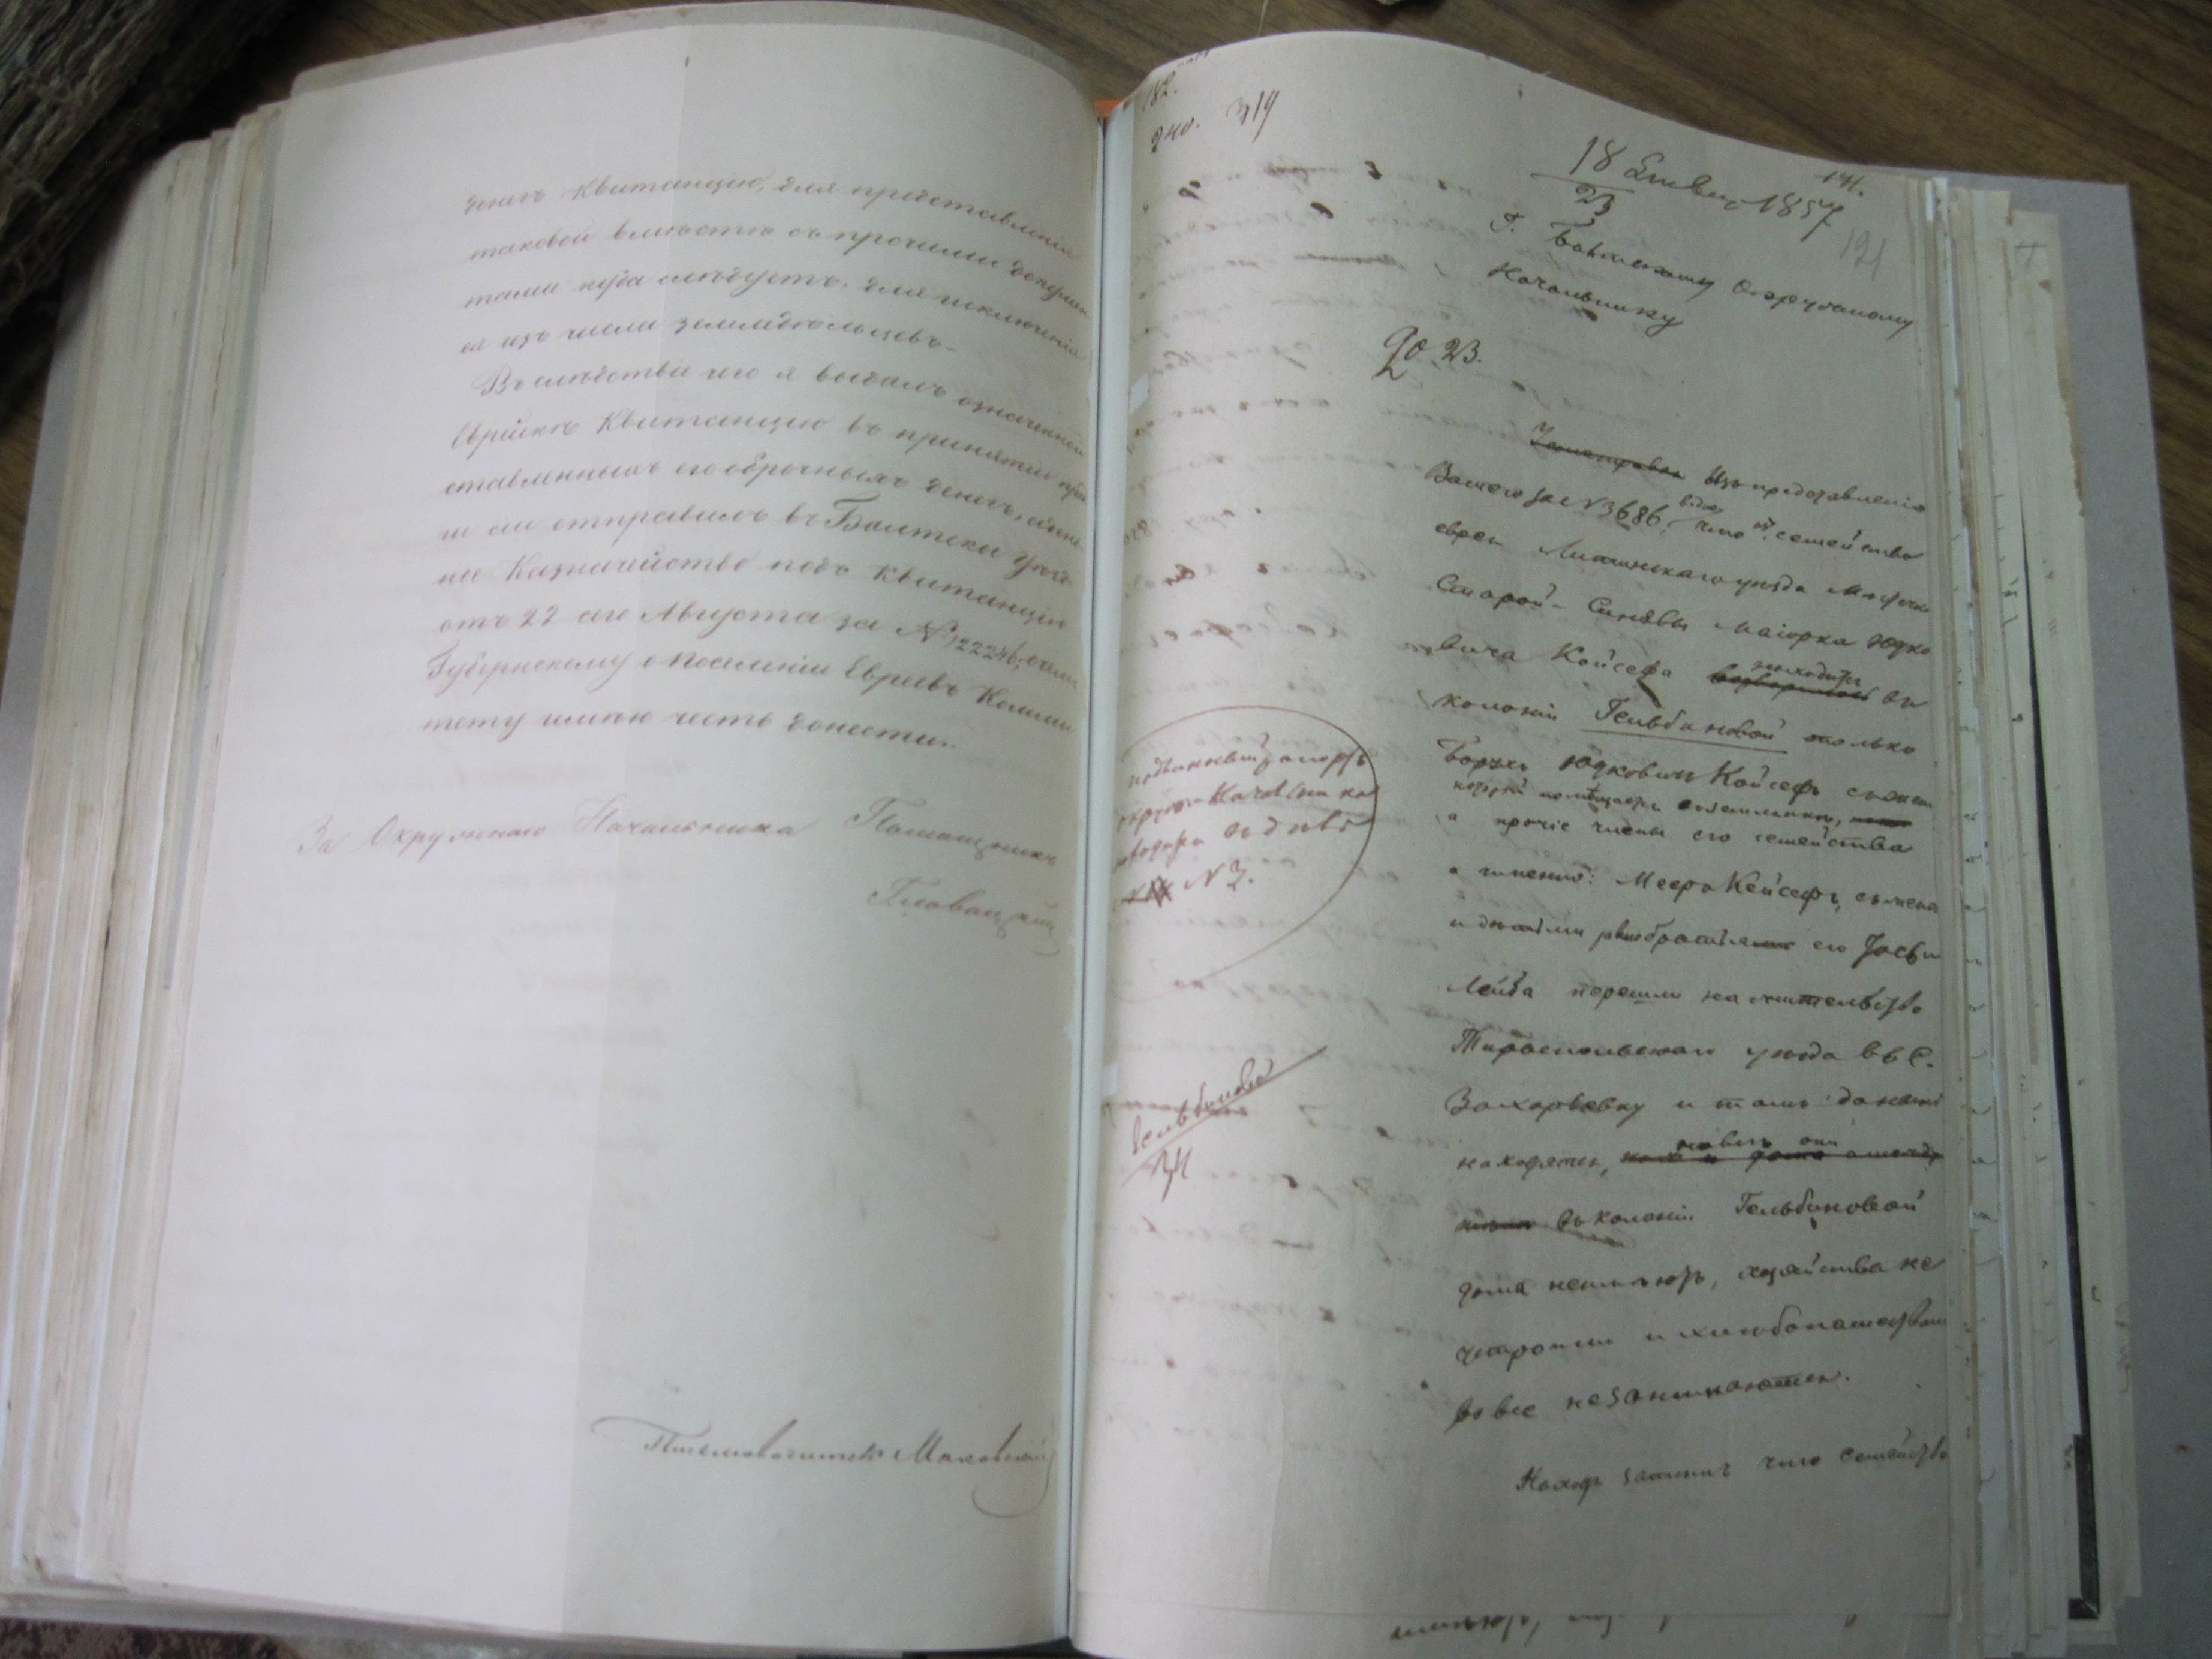 денегъ квитанцію, для представленія
таковой вмѣстѣ съ прочими докумен
тами куда слѣдуетъ, для исключенія
ея изъ числа земледѣльцевъ.
Въ слѣдствіе чего я выдалъ означенной
Еврейкѣ Квитанцію въ принятіи пред
ставленныхъ ею оброчныхъ денегъ,
отправилъ въ Балтское Уѣзд
ное Казначейство подъ квитанцію
отъ 22 сего Августа за №12224б, о чемъ
Губернскому о поселеніи Евреевъ Коми
тету имѣю честь донести.
За Окружнаго Начальника Помощникъ
Письмоводитель Маковскій
182.
240. 319
18 1857
23
141.
121
Г. Балтскому Окружному
Начальнику
До 23.
Изъ представленія
Вашего за №3686, видно, что семейство
еврея Литинскаго уѣзда Мѣстечка
Старой-Синявы Маіорка Юдко
вича Койсефа находится въ
колоніи Гельбиновой только
Борухъ Юдковичъ Койсефъ съ женою
который помѣщается въ землянкѣ,
а прочіе члены его семейства
а именно: Мееръ Кейсефъ, съ женою
и дѣтьми равно братія его Іось и
Лейба перешли на жительство
Тираспольскаго уѣзда въ С.
Захарьевку и тамъ донынѣ
находятся, новъ они
въ колоніи Гельбиновой
дома неимѣютъ, хозяйства не
устроили и хлѣбопашествомъ
вовсе незанимаются.
Находя затѣмъ что семейство
подлинный рапортъ
окруж. Начальника по
№ 3.
Гельбинова
34